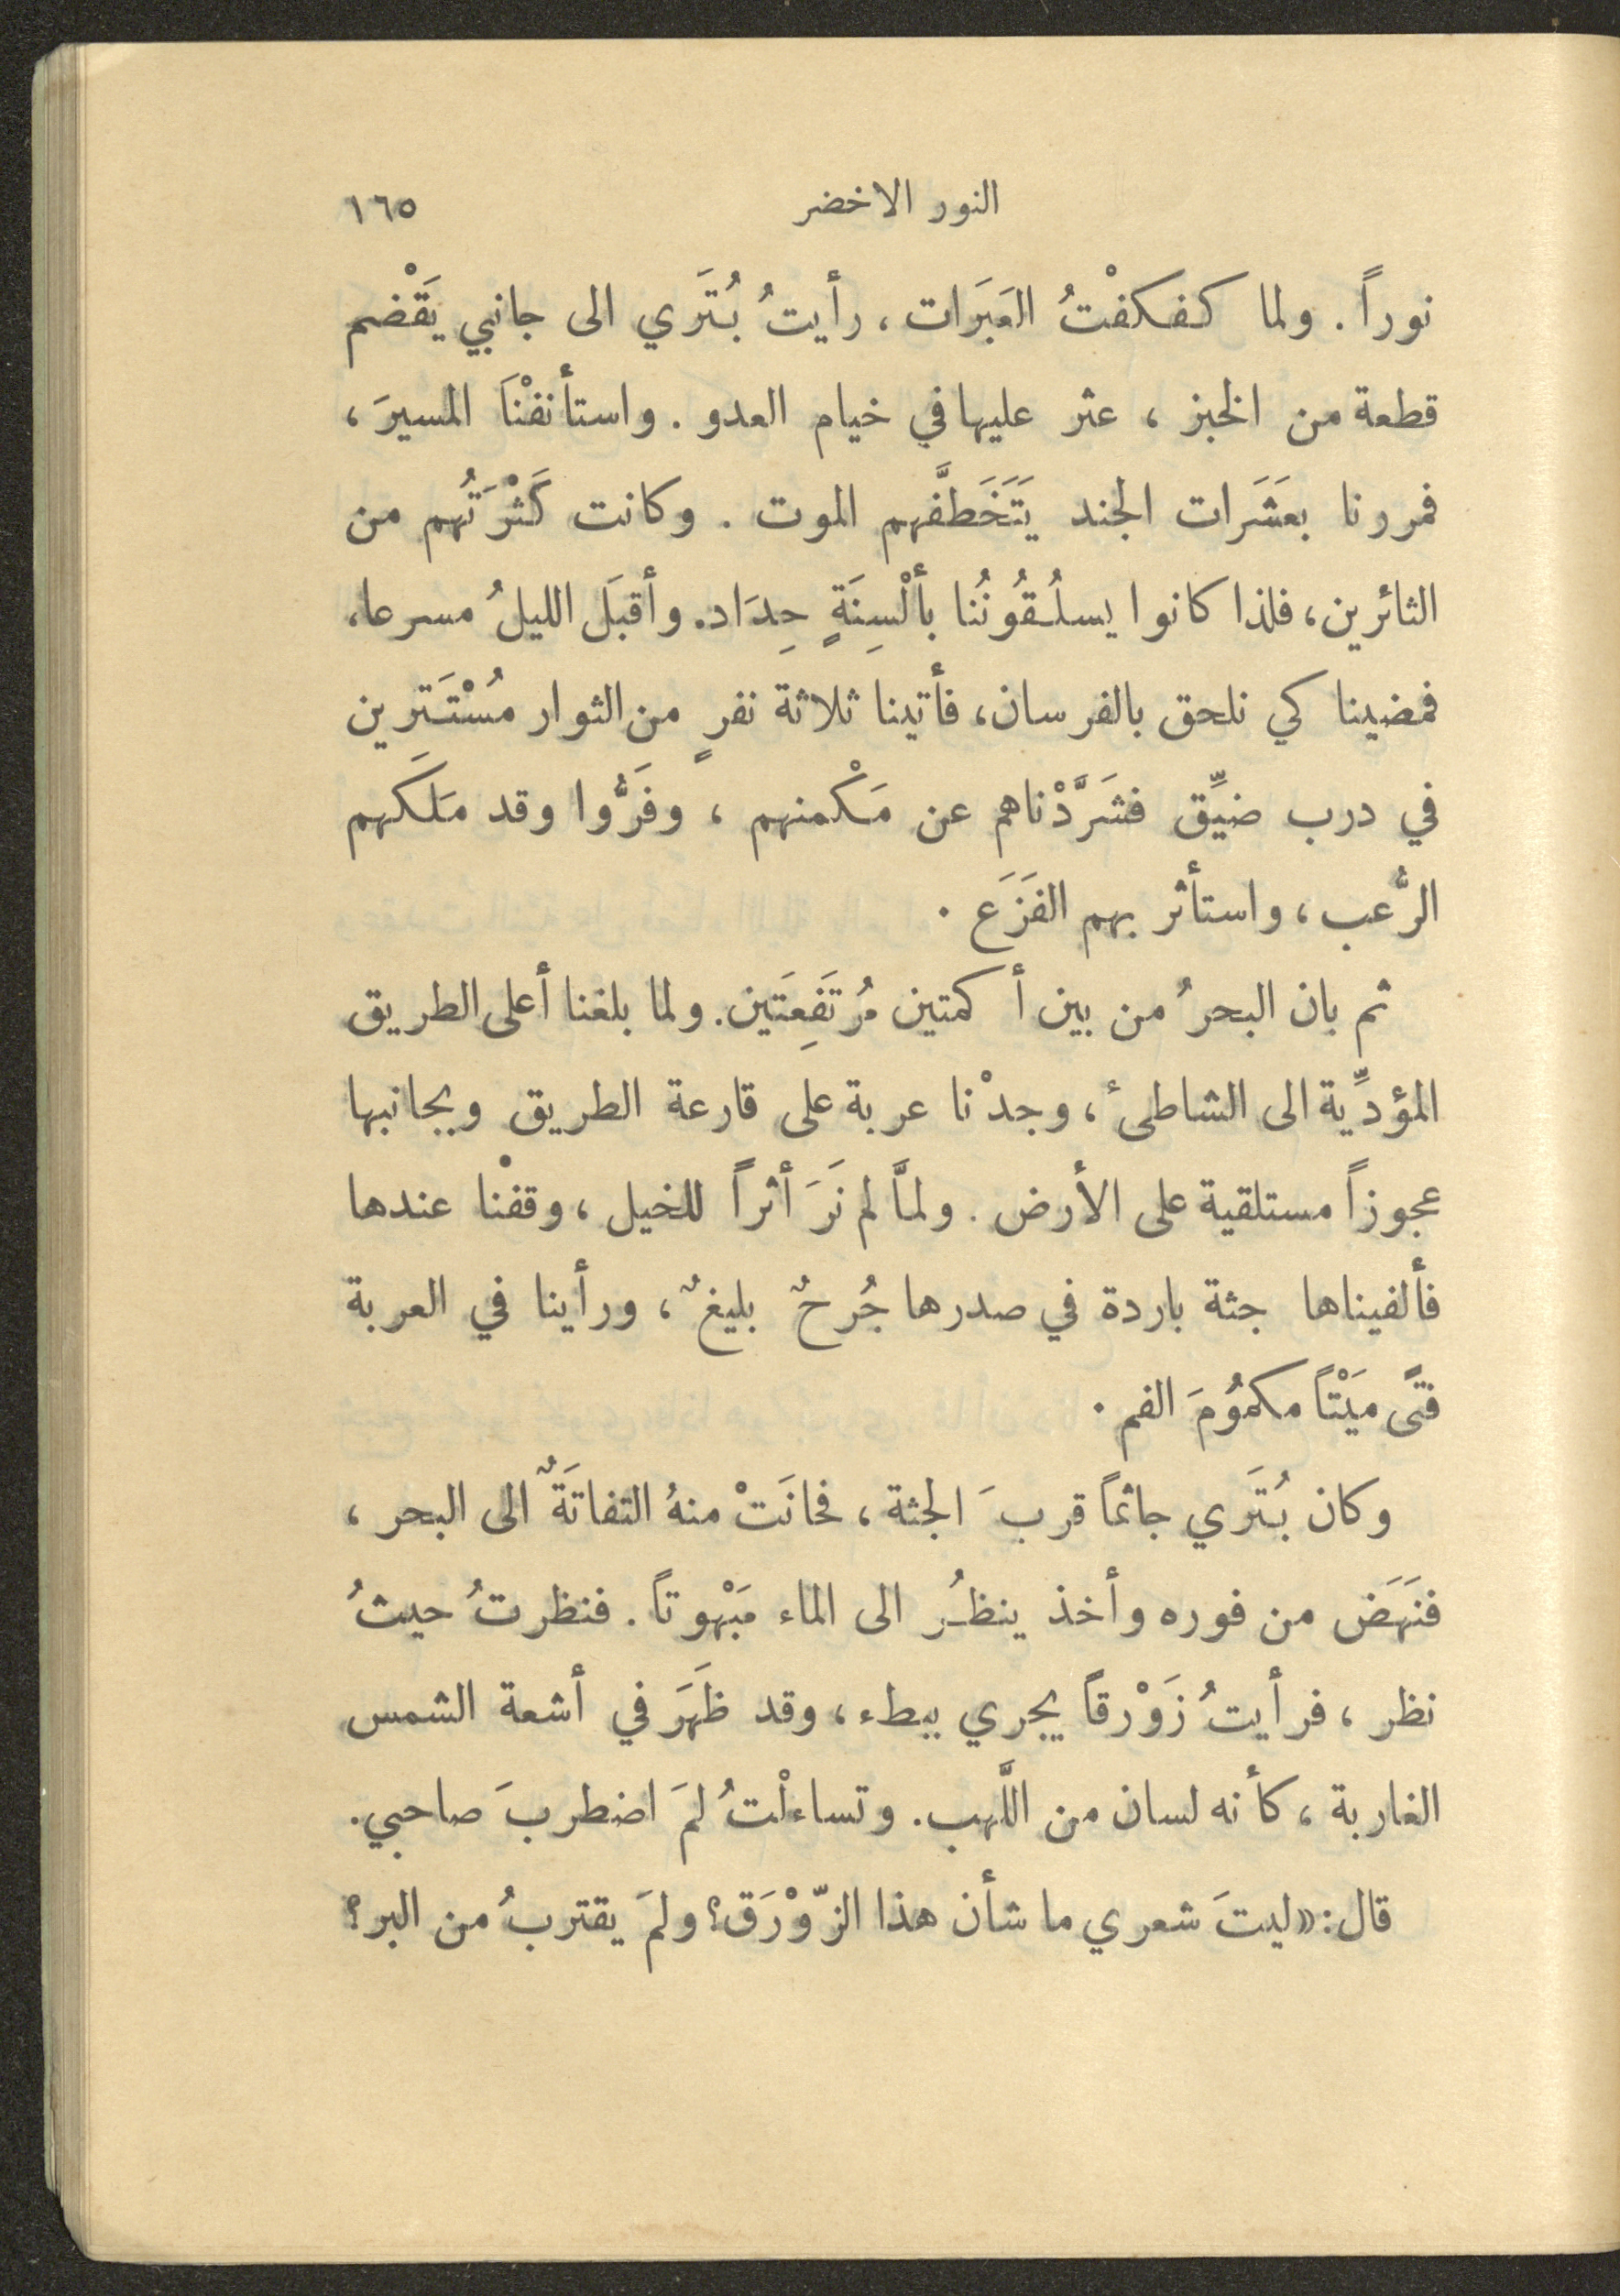 النور الاخضر ١٦٥
نوراً . ولما كفكفْتُ العَبَرَات ، رأيتُ بُتَري الى جانبي يَقْضم
قطعة من الخبز ، عثر عليها في خيام العدو . واستأنفْنَا المسيرَ ،
فمررنا بعَشَرَات الجند يَتَخَطَّفهم الموت . وكانت كَثْرَتُهم من
الثائرين ، فلذا كانوا يسلُقُونُنا بألْسِنَةٍ حِدَاد . وأقبَل الليلُ مسرعا ،
فمضينا كي نلحق بالفرسان ، فأتينا ثلاثة نفرٍ من الثوار مُسْتَترين
في درب ضيِّق فشَرَّدْناهم عن مَكْمنهم ، وفَرُّوا وقد مَلَكَهم
الرُّعب ، واستأثر بهم الفَزَع .
ثم بان البحرُ من بين أكمتين مُرتَفِعَتَين . ولما بلغنا أعلى الطريق
المؤدِّية الى الشاطىء ، وجدْنا عربة على قارعة الطريق وبجانبها
عجوزاً مستلقية على الأرض . ولمَّا لم نَرَ أثراً للخيل ، وقفْنا عندها
فألفيناها جثة باردة في صدرها جُرحٌ بليغٌ ، ورأينا في العربة
فتًى ميَتْاً مكموُمَ الفم .
وكان بُتَري جاثماً قربَ الجثة ، فحانَتْ منهُ التفاتَةٌ الى البحر ،
فنَهَضَ من فوره وأخذ ينظُر الى الماء مَبْهوتاً . فنظرتُ حيثُ
نظر ، فرأيتُ زَوْرقاً يجري ببطء ، وقد ظَهَرَ في أشعة الشمس
الغاربة ، كأنه لسان من اللَّهب . وتساءلْتُ لمَ اضطربَ صاحبي .
قال : «ليتَ شعري ما شأن هذا الزّوْرَق ؟ ولمَ يقتربُ من البر ؟